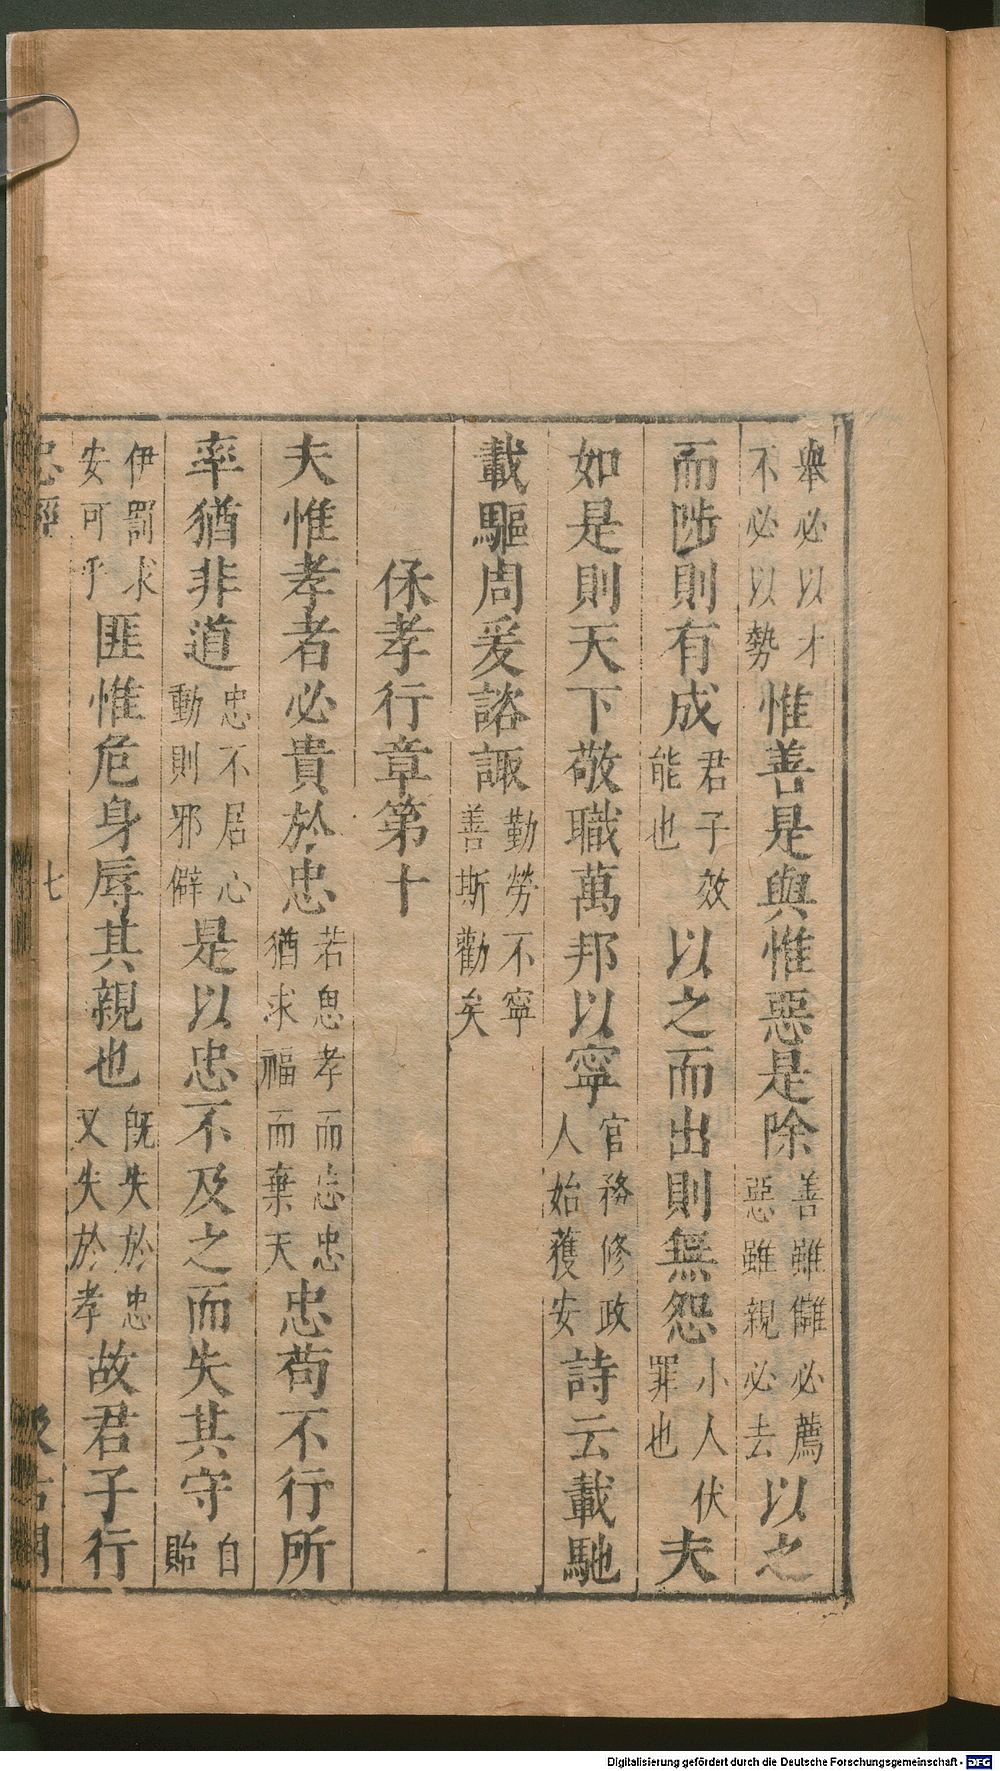 舉必以才不必以勢惟善是與惟惡是除善雖讎必薦惡雖親必去以之
而陟則有成君子效能也以之而出則無怨小人伏罪也夫
如是則天下敬職萬邦以寧官務修政人始獲安詩云載馳
載驅周爰諮諏勤勞不寧善斯勸矣
保孝行章第十
夫惟孝者必貴於忠若思孝而忘忠猶求福而棄天忠苟不行所
率猶非道忠不居心動則邪僻是以忠不及之而失其守自貽
伊罰求安可乎匪惟危身辱其親也旣失於忠又失於孝故君子行
忠經 七 汲古閣
Digitalisierung gefördert durch die Deutsche Forschungsgemeinschaft - DFG